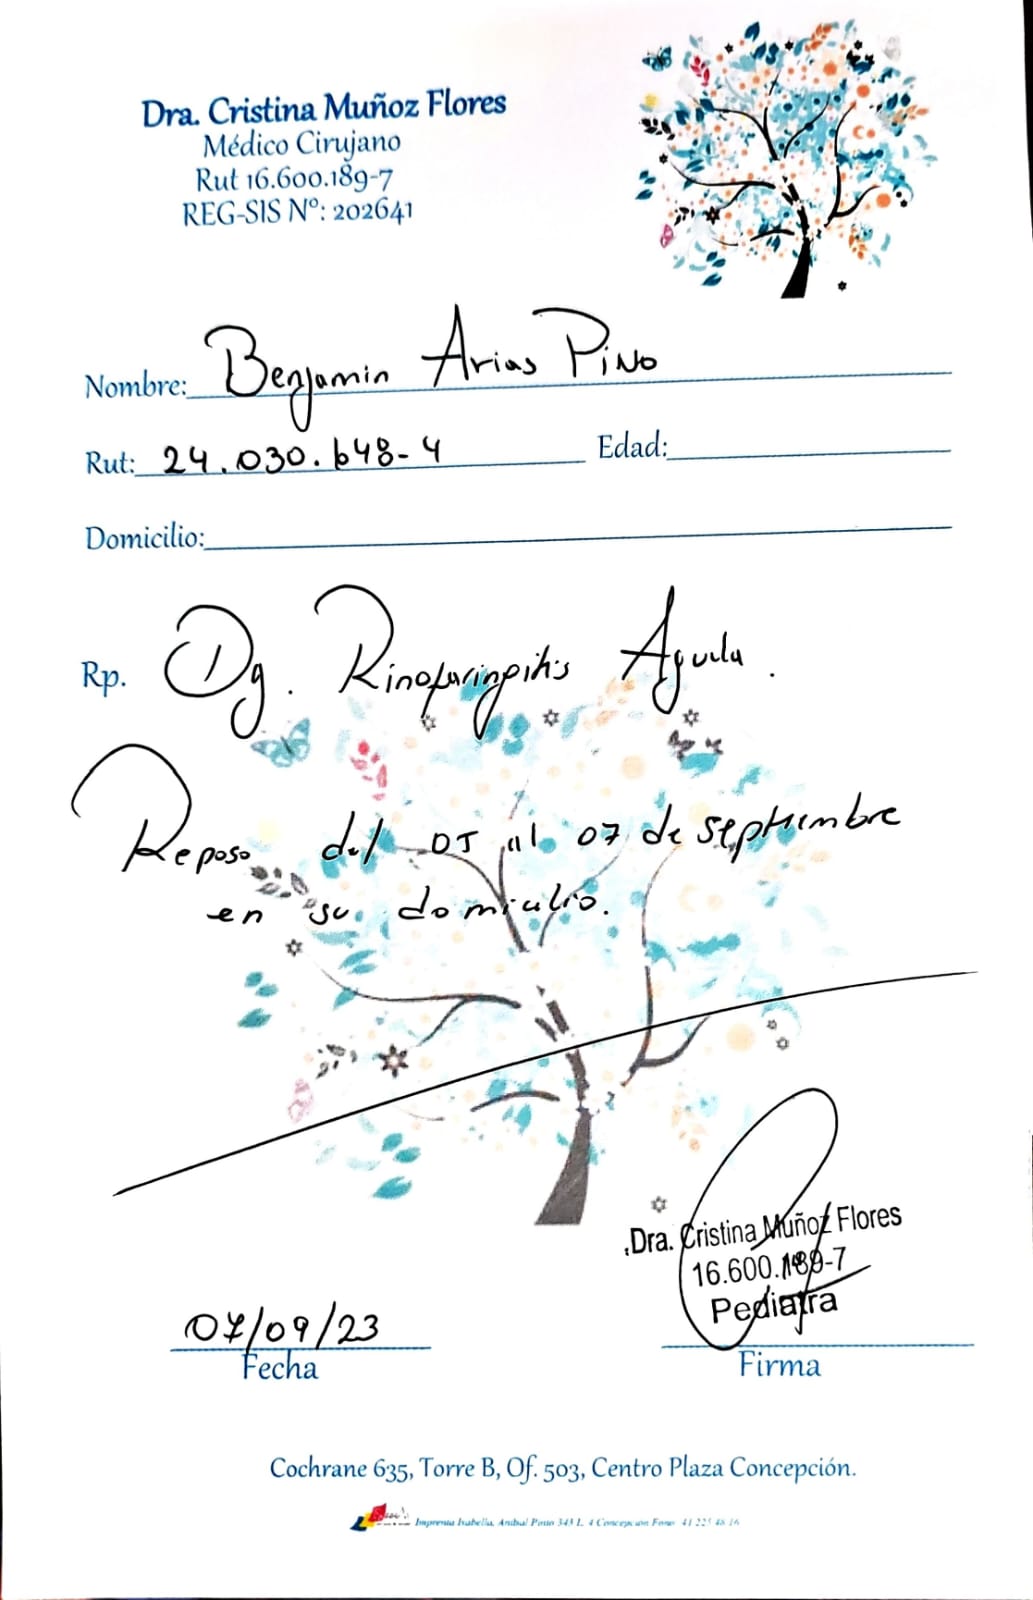 Dra. Cristina Muñoz Flores
Médico Cirujano
Rut 16.600.189-7
REG-SIS Nº: 202641
Nombre: Benjamin Arias Pino
Rut: 24.030.648-4 Edad:
Domicilio:
Rp. Dg. Rinofaringitis Aguda.
Reposo del 05 al 07 de septiembre
en su domicilio.
Dra. Cristina Muñoz Flores
16.600.189-7
Pediatra
07/09/23
Fecha Firma
Cochrane 635, Torre B, Of. 503, Centro Plaza Concepción.
Imprenta Isabella, Anibal Pinto 343 L. 4 Concepcion Fono: 41 225 48 16